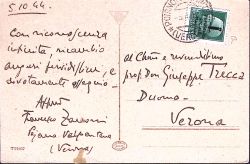 5.10.44
Con riconoscenza
infinita, ricambio
auguri fervidissimi, e
devotamente ossequio
Francesco Zamboni
Fosano Valpantena
(Verona)
Al Ch.mo e reverendissimo
prof. Don Giuseppe Trecca
Duomo
Verona